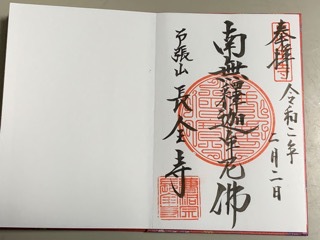 奉拝
令和二年
二月二日
南無釋迦牟尼佛
長全寺